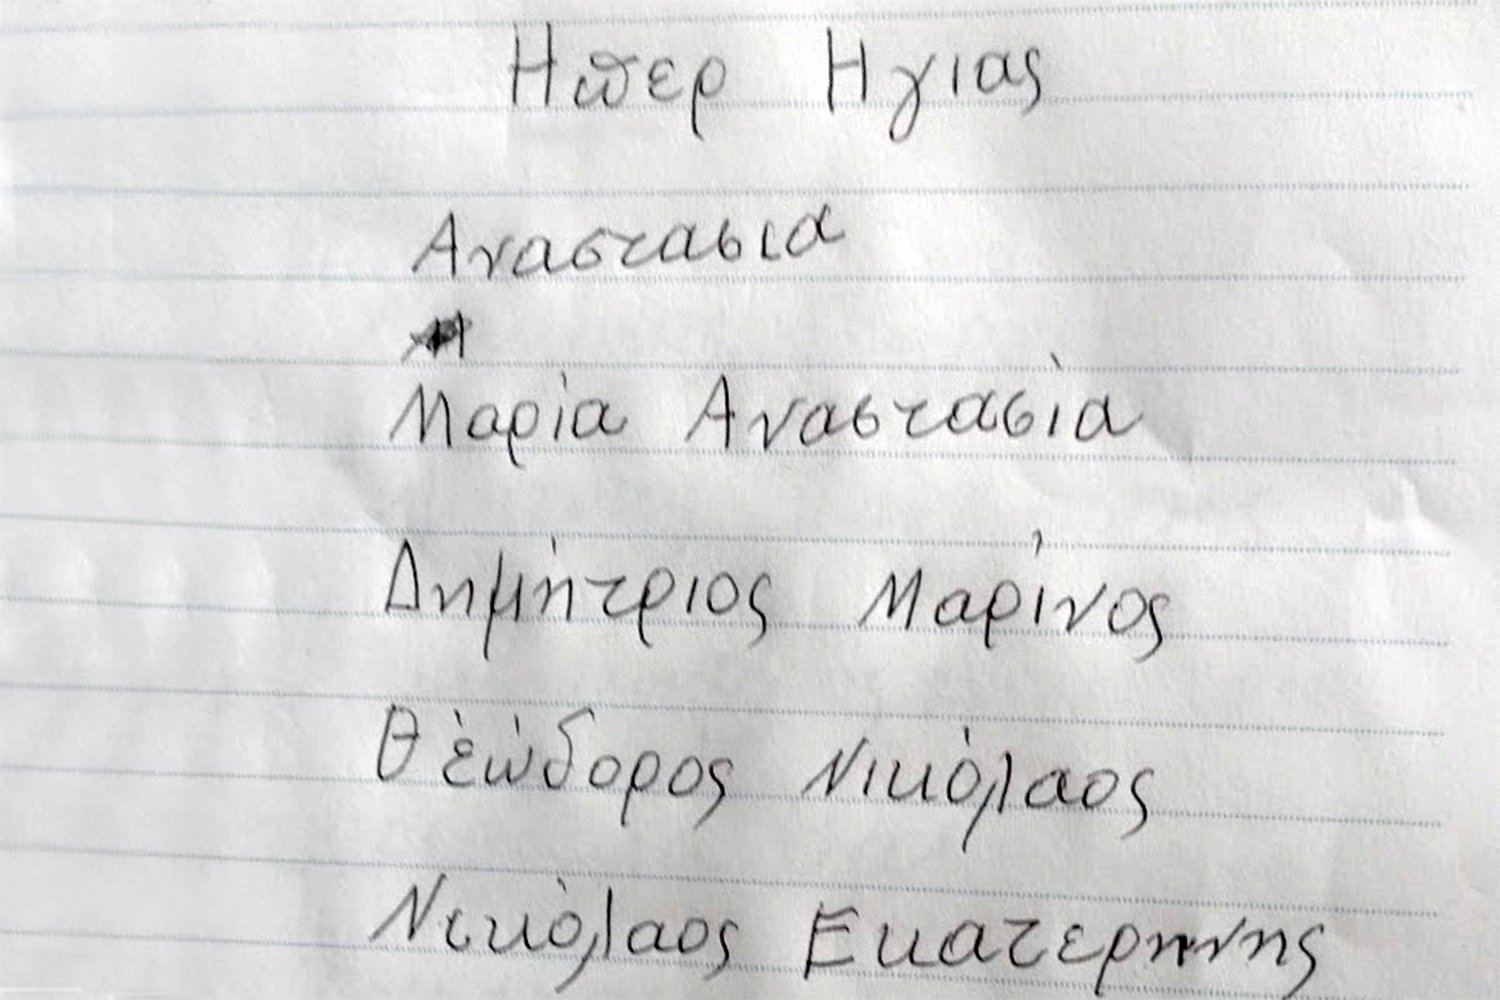 Ηπερ Ηγιας
Αναστασια
Μαρία Αναστασία
Δημήτριος Μαρίνος
Θέώδορος Νικόλαος
Νικόλαος Εκατερηνης